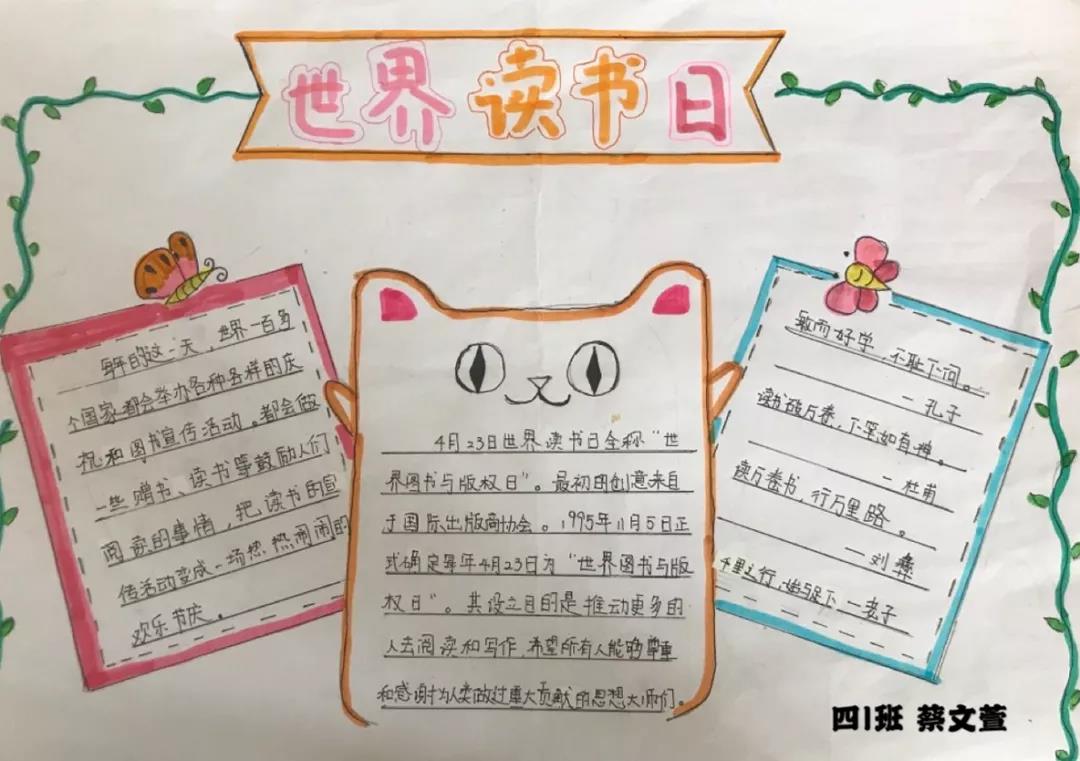 世界读书日
每年的这一天，世界一百多
个国家都会举办各种各样的庆
祝和图书宣传活动。都会做
一些赠书、读书等鼓励人们
阅读的事情，把读书的宣
传活动变成一场热热闹闹的
欢乐节庆。
4月23日世界读书日全称“世
界图书与版权日”。最初的创意来自
于国际出版商协会。1995年11月5日正
式确定每年4月23日为“世界图书与版
权日”。其设立目的是推动更多的
人去阅读和写作，希望所有人能够尊重
和感谢为人类做过重大贡献的思想大师们。
敏而好学，不耻下问。
—孔子
读书破万卷，下笔如有神。
—杜甫
读万卷书，行万里路。
—刘彝
千里之行，始于足下—老子
四1班 蔡文萱